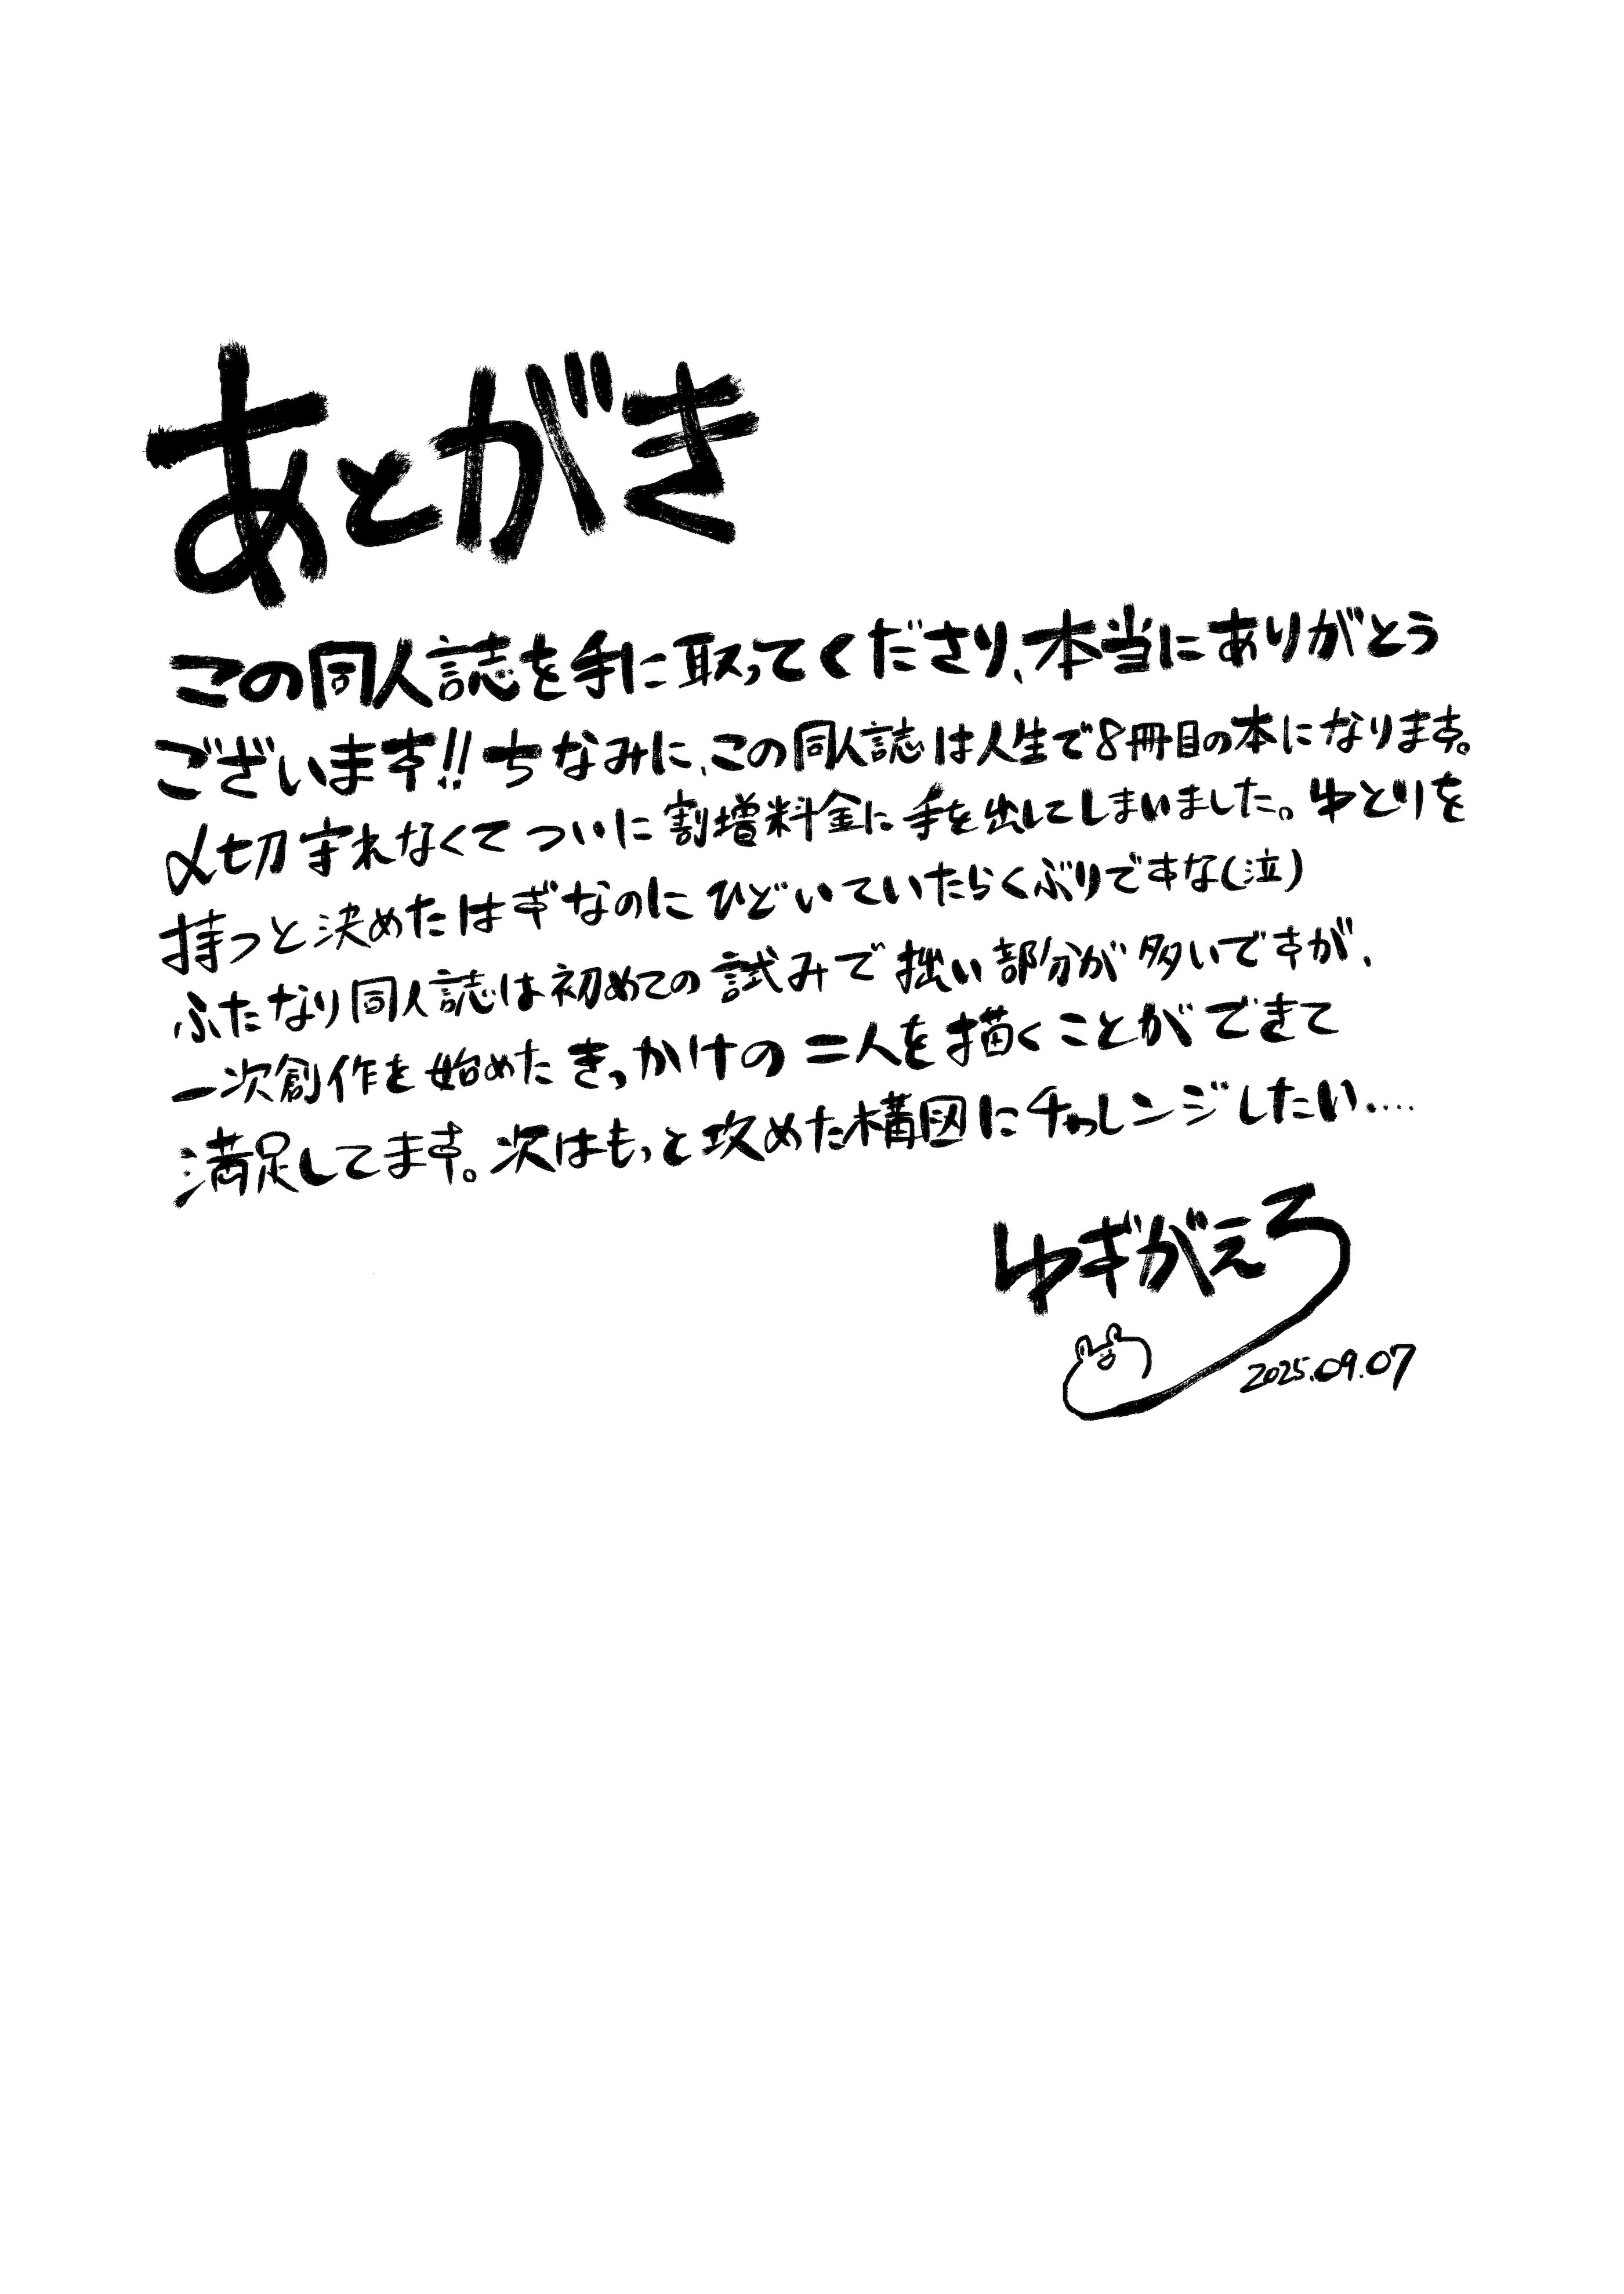 あとがき
この同人誌を手に取ってくださり、本当にありがとう
ございます!! ちなみに、この同人誌は人生で8冊目の本になります。
〆切守れなくてついに割増料金に手を出してしまいました。ゆとりを
持つと決めたはずなのにひどいていたらくぶりですな(泣)
ふたなり同人誌は初めての試みで拙い部分が多いですが、
一次創作を始めたきっかけの二人を描くことができて
満足してます。次はもっと攻めた構図にチャレンジしたい....
ゆずがえろ
2025.09.07